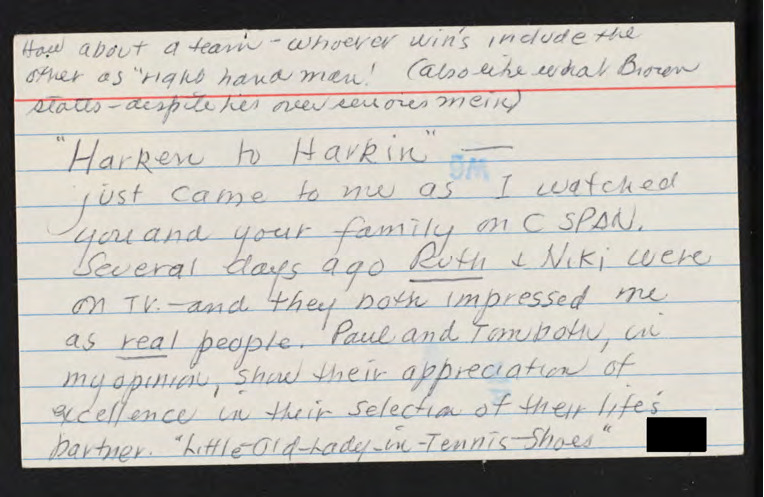 How about a team - whoever wins include the
other as "right hand man! (also like what Brown
states - despite his over serious mein)
"Harken to Harkin" —
just came to me as I watched
you and your family on C SPAN.
Several days ago Ruth & Niki were
on TV. - and they both impressed me
as real people. Paul and Tom both, in
my opinion, show their appreciation of
excellence in their selection of their life's
partner. "Little-Old-Lady-in-Tennis-Shoes"